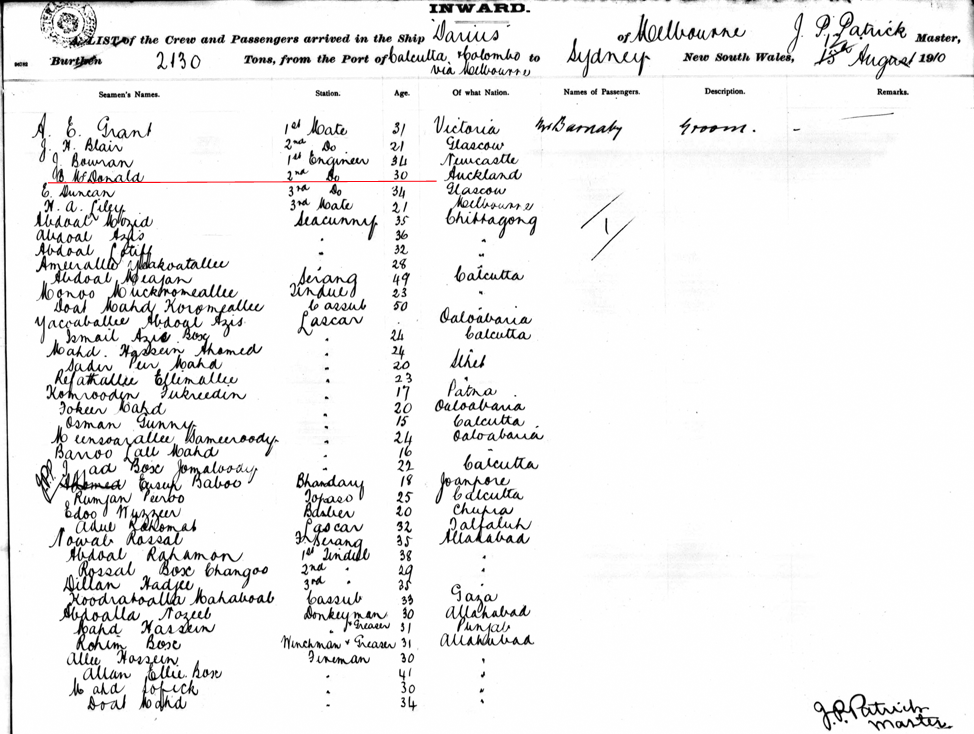 INWARD.
A LIST of the Crew and Passengers arrived in the Ship "Darius" of Melbourne J. P. Patrick Master,
Burthen 2130 Tons, from the Port of Calcutta & Colombo via Melbourne to Sydney New South Wales, 15th August 1910
Seamen's Names. Station. Age. Of what Nation. Names of Passengers. Description. Remarks.
A. E. Grant 1st Mate 31 Victoria Mr Barnaby Groom. -
J. H. Blair 2nd Do 21 Glascow
J. Bowran 1st Engineer 34 Newcastle
B McDonald 2nd Do 30 Auckland
E. Duncan 3rd Do 34 Glascow
H. A. Liley 3rd Mate 21 Melbourne
Abdoal Mozid Seacunny 35 Chittagong
Abdoal Azis " 36
Abdoal Lotiff " 32 "
Ameerallee " 28
Abdoal Meajan Serang 49 Calcutta
Monoo Muckmomeallee Tindul 23 "
Doat Mahd Koromeallee Cassub 50
Yaccaballee Abdoal Azis Lascar . Oaloabaria
Ismail Azis Box " 24 Calcutta
Mahd. Hassein Ahomed " 24
Sadir Peir Mahd " 20 Sthet
Refathallee Ellimallee " 23 "
Komroodin Fukreedin " 17 Patna
Tokeer Mahd " 20 Oaloabaria
Osman Gunny " 15 Calcutta
Meensoarallee Sameeroody " 24 Oaloabaria
Barroo Lall Mahd " 16
Box Jomaloody " 22 Calcutta
J.P.P. Eusup Baboo Bhandary 18 Joanpore
Rumjan Peroo Topaso 25 Calcutta
Edoo Wuzzeer Barber 20 Chupra
Adue Rahomat Lascar 32
Nowab Rossal Serang 35 Allahabad
Abdoal Rahamon 1st Tindul 38 "
Rossal Box Changoo 2nd " 29 "
Dillan Hadjee 3rd " 35 "
Koodratoalla Mahaboab Cassub 33 Gaza
Abdoalla Nozeeb Donkeyman 30 Allahabad
Mahd Hassein " & Greaser 31 Punjab
Rohim Box Winchman & Greaser 31 Allahabad
Allee Hossein Fireman 30 "
Allan Ellie Box " 41 "
Mahd Sofick " 30 "
Doat Mahd " 34 "
J.P. Patrick
Master